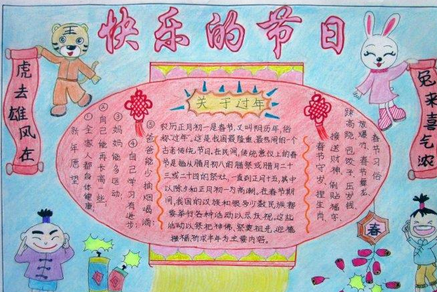 快乐的节日
虎去雄风在
兔来喜气浓
关于过年
农历正月初一是春节,又叫阴历年,俗
称"过年",这是我国最隆重、最热闹的一个
古老传统节日。在民间,传统意义上的春
节是指从腊月初八的腊祭或腊月二十
三或二十四的祭灶,一直到正月十五,其中
以除夕和正月初一为高潮。在春节期
间,我国的汉族和很多少数民族都
要举行各种活动以示庆祝。这些
活动以祭祀神佛、祭奠祖先、迎禧
接福、祈求丰年为主要内容。
新年愿望
①全家人都身体健康
②自己能再长高些
③妈妈能多运动
④自己学习有进步
⑤爸爸能少抽烟喝酒
春节习俗
放爆竹、贴春节窗花
接送财神,倒贴福字
春节少发捏生肖
春